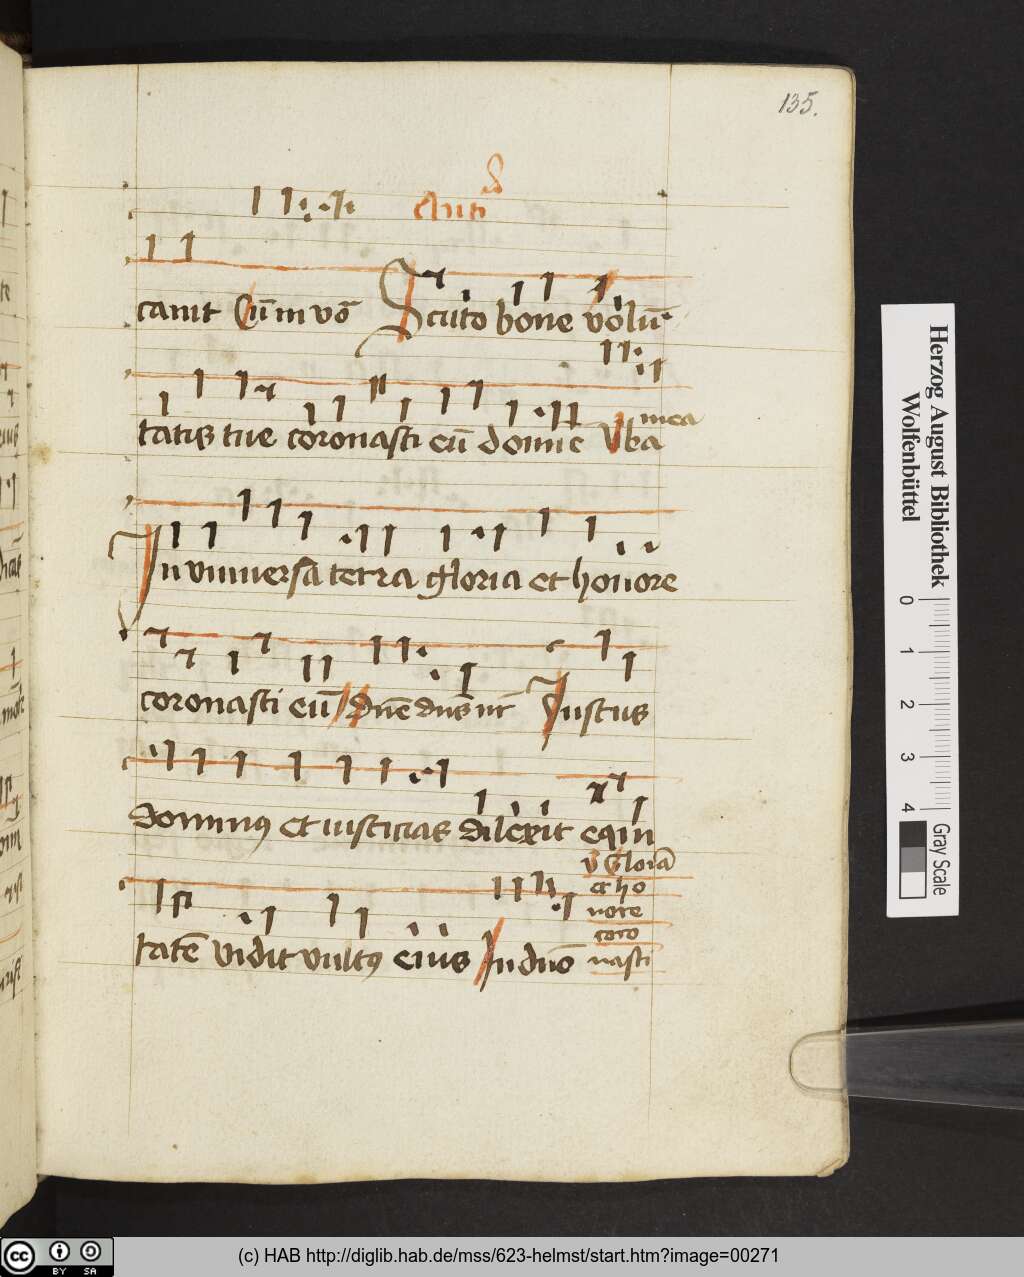 135.
Anti
canit Cū in vō Scuto bone volū
tatis tue coronasti eū domīe Vba mea
In vniuersa terra gloria et honore
coronasti eū dn̄e dn̄s nr̄ Justus
dominꝰ et iusticias dilexit equi
tatē vidit vultꝰ eius In dn̄o
v̄ Gloīa
et ho
nore
coro
nasti
Herzog August Bibliothek
Wolfenbüttel
0 1 2 3 4
Gray Scale
cc BY SA
(c) HAB http://diglib.hab.de/mss/623-helmst/start.htm?image=00271